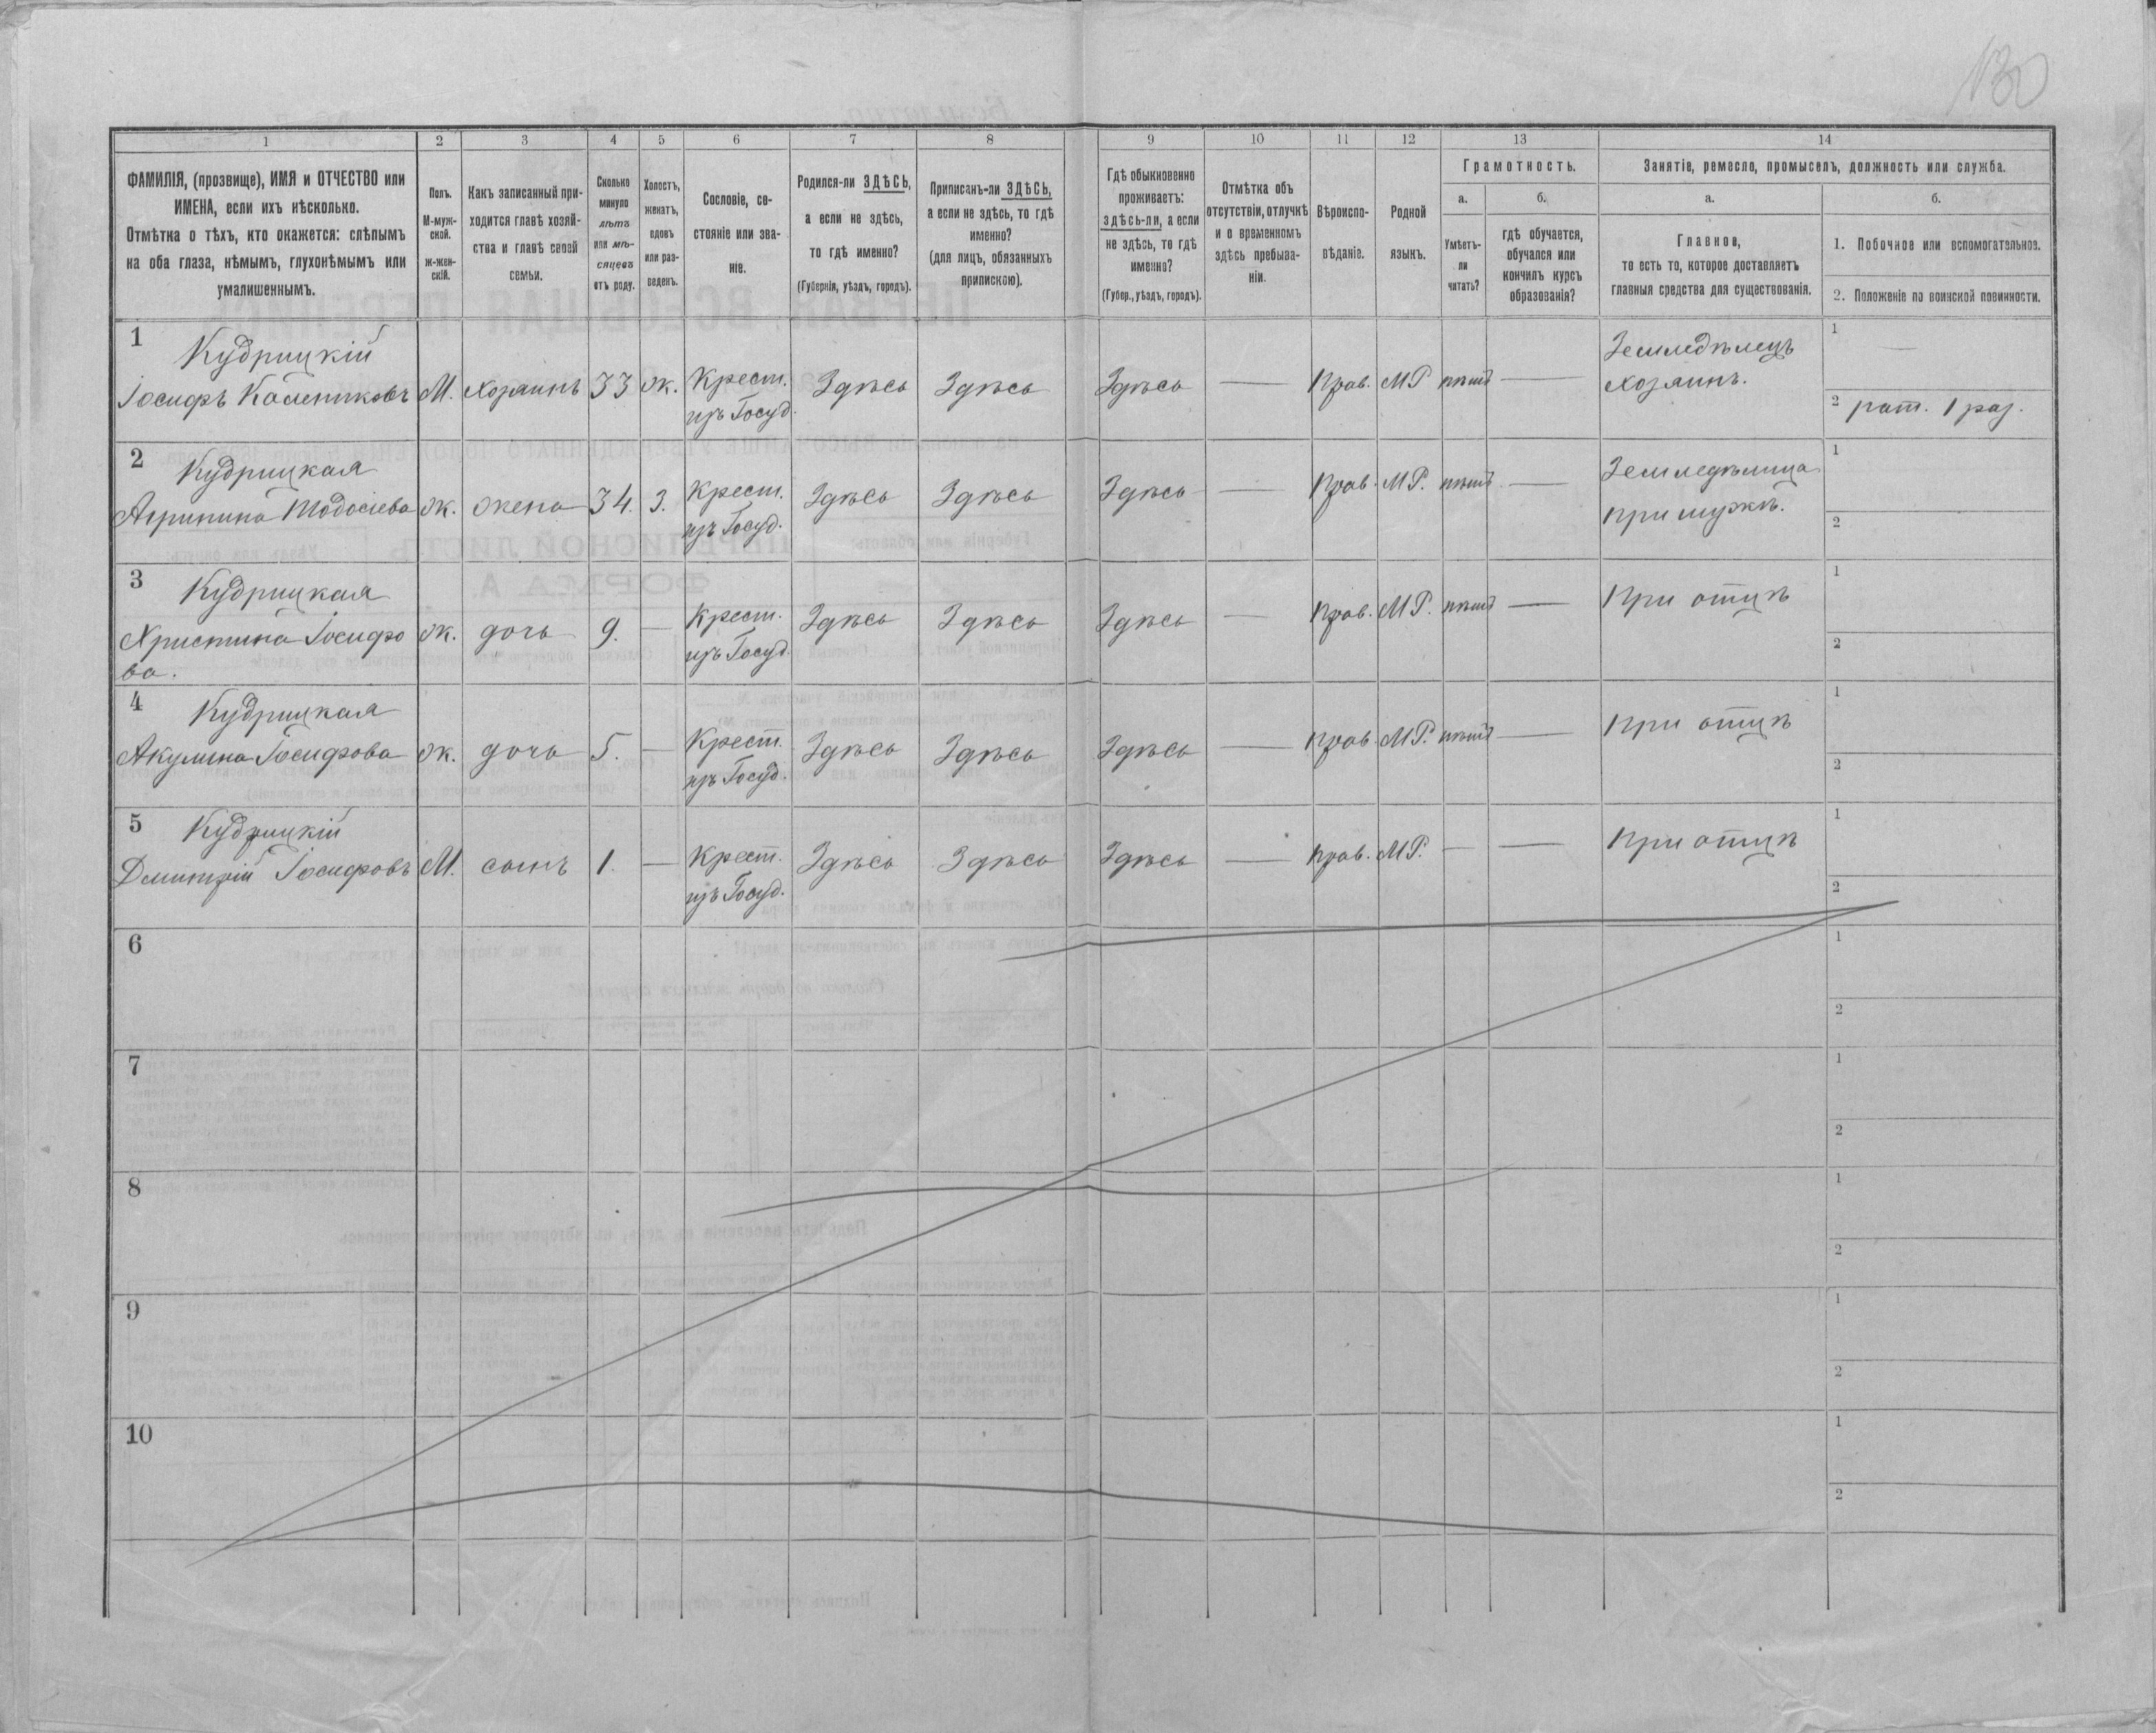 130
1 2 3 4 5 6 7 8 9 10 11 12 13 14
ФАМИЛІЯ, (прозвище), ИМЯ и ОТЧЕСТВО или
ИМЕНА, если ихъ нѣсколько.
Отмѣтка о тѣхъ, кто окажется: слѣпымъ
на оба глаза, нѣмымъ, глухонѣмымъ или
умалишеннымъ.
Полъ.
М-муж-
ской.
ж-жен-
скій.
Какъ записанный при-
ходится главѣ хозяй-
ства и главѣ своей
семьи.
Сколько
минуло
лѣтъ
или мѣ-
сяцевъ
отъ роду.
Холостъ,
женатъ,
вдовъ
или раз-
веденъ.
Сословіе, со-
стояніе или зва-
ніе.
Родился-ли ЗДѢСЬ,
а если не здѣсь,
то гдѣ именно?
(Губернія, уѣздъ, городъ).
Приписанъ-ли ЗДѢСЬ,
а если не здѣсь, то гдѣ
именно?
(для лицъ, обязанныхъ
припискою).
Гдѣ обыкновенно
проживаетъ:
здѣсь-ли, а если
не здѣсь, то гдѣ
именно?
(Губер., уѣздъ, городъ).
Отмѣтка объ
отсутствіи, отлучкѣ
и о временномъ
здѣсь пребыва-
ніи.
Вѣроиспо-
вѣданіе.
Родной
языкъ.
Грамотность.
а.
Умѣетъ-
ли
читать?
б.
гдѣ обучается,
обучался или
кончилъ курсъ
образованія?
Занятіе, ремесло, промыселъ, должность или служба.
а.
Главное,
то есть то, которое доставляетъ
главныя средства для существованія.
б.
1. Побочное или вспомогательное.
2. Положеніе по воинской повинности.
1 Кудрицкій
Іосифъ Калениковъ М. хозяинъ 33 ж. Крест. Здѣсь Здѣсь Здѣсь — Прав. МР. нѣтъ — Земледѣлецъ 1 —
изъ Госуд. хозяинъ. 2 рат. 1 раз.
2 Кудрицкая
Агрипина Тодосіева ж. жена 34. З. Крест. Здѣсь Здѣсь Здѣсь — Прав. МР. нѣтъ — Земледѣлица 1
изъ Госуд. при мужѣ. 2
3 Кудрицкая
Христина Іосифо ж. дочь 9. — Крест. Здѣсь Здѣсь Здѣсь — Прав. МР. нѣтъ — При отцѣ 1
ва. изъ Госуд. 2
4 Кудрицкая
Акулина Іосифова ж. дочь 5. — Крест. Здѣсь Здѣсь Здѣсь — Прав. МР. нѣтъ — При отцѣ 1
изъ Госуд. 2
5 Кудрицкій
Дмитрій Іосифовъ М. сынъ 1. — Крест. Здѣсь Здѣсь Здѣсь — Прав. МР. — — При отцѣ 1
изъ Госуд. 2
6 1
2
7 1
2
8 1
2
9 1
2
10 1
2